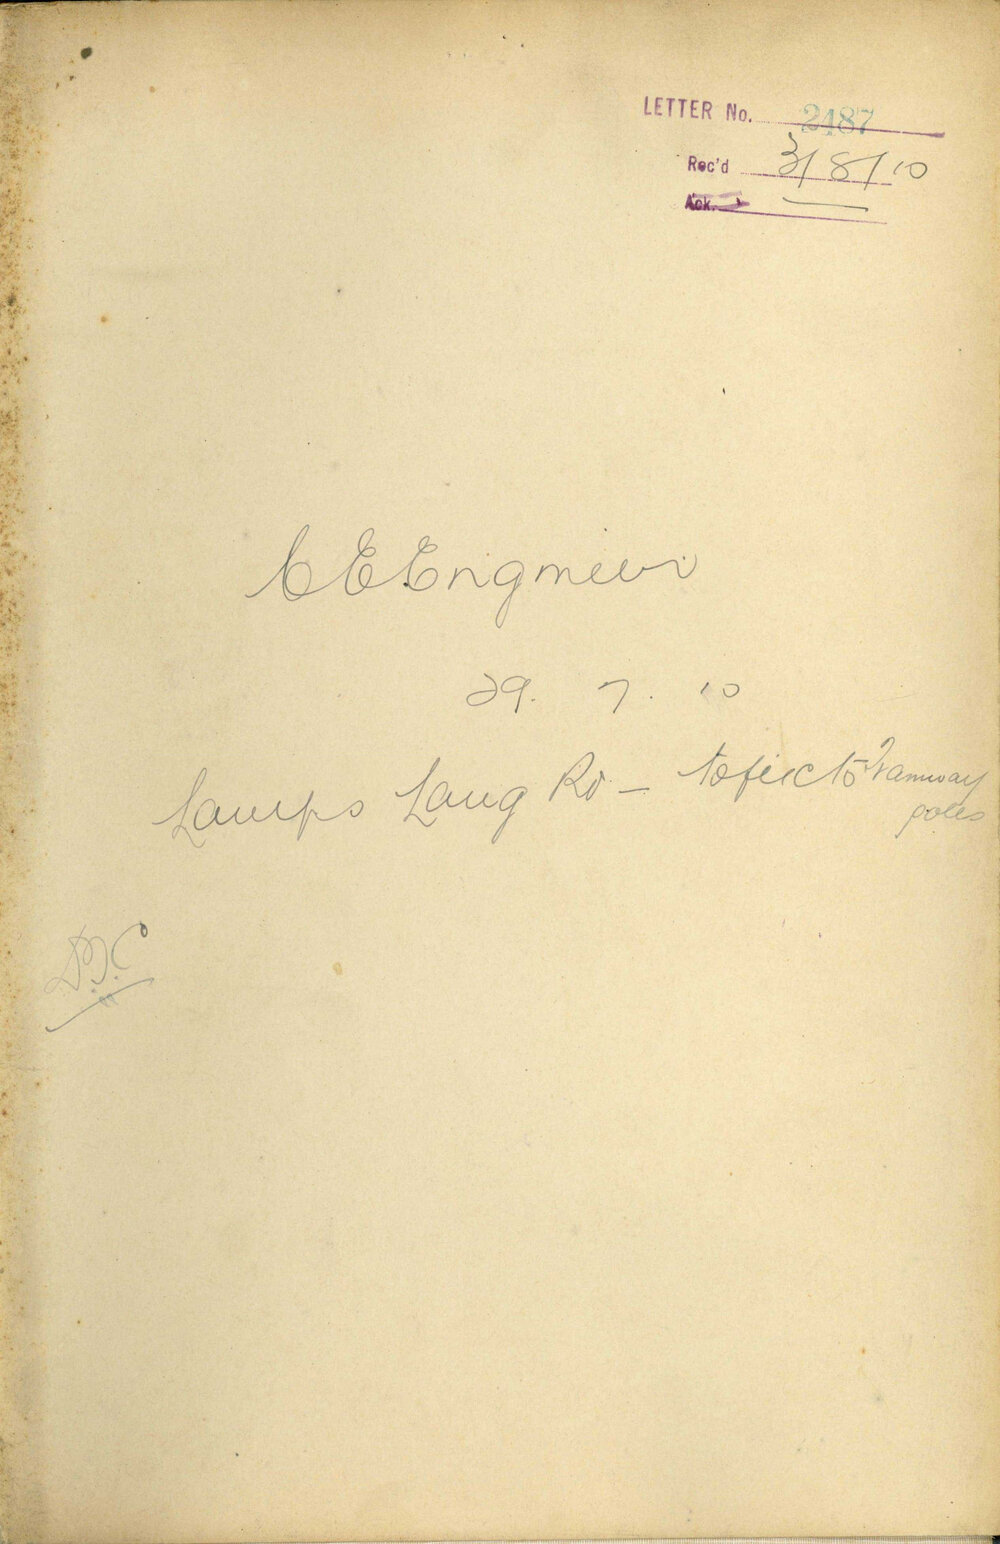 LETTER No. 2187
Rec'd 3/8/10
Ack.
C E Engineer
29. 7. 10
Lamps Lang Rd - to fix to Tramway
poles